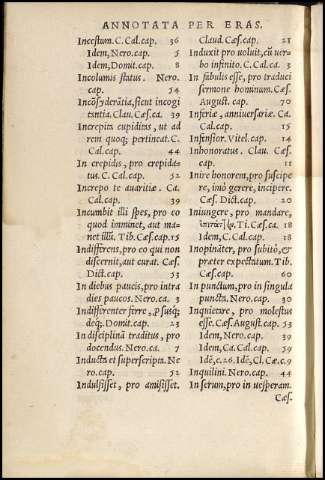 ANNOTATA PER ERAS.
Incestum. C. Cal. cap. 36
Idem, Nero. cap. 5
Idem, Domit. cap. 8
Incolumis status. Nero.
cap. 54
Incōsyderātia, sicut incogi
tantia. Clau. Cæs. ca. 39
Increpita cupiditas, ut ad
rem quoq; pertineat. C.
Cal. cap. 44
In crepidis, pro crepida-
tus. C. Cal. cap. 52
Increpo te auaritiæ. Ca.
Cal. cap. 39
Incumbit illi spes, pro eo
quod imminet, aut ma-
net illū. Tib. Cæs. cap. 15
Indifferens, pro eo qui non
discernit, aut curat. Cæs.
Dict. cap. 53
In diebus paucis, pro intra
dies paucos. Nero. ca. 3
Indifferenter ferre, p susq;
deq;. Domit. cap. 23
In disciplinā traditus, pro
docendus. Nero. ca. 7
Inducta et superscripta. Ne
ro. cap. 52
Indulsisset, pro amisisset.
Claud. Cæs. cap. 21
Induxit pro uoluit, cū uer-
bo infinito. C. Cal. ca. 3
In fabulis esse, pro traduci
sermone hominum. Cæs.
August. cap. 70
Inferiæ, anniuersariæ. Ca.
Cal. cap. 15
Infensior. Vitel. cap. 14
Inhonoratus. Clau. Cæs.
cap. 11
Inire honorem, pro suscipe
re, imò gerere, incipere.
Cæs. Dict. cap. 20
Iniungere, pro mandare,
Ti. Cæs. ca. 18
Idem, C. Cal. cap. 18
Inopināter, pro subitò, &
præter expectatum. Tib.
Cæs. cap. 60
In punctum, pro in singula
puncta. Nero. cap. 30
Inquietare, pro molestus
esse. Cæs. August. cap. 53
Idem, Nero. cap. 34
Idem, Ca. Cal. cap. 59
Idē, c. 26. Idē, Cl. Cæ. c. 9
Inquilini. Nero. cap. 44
In serum, pro in uesperam.
Cæs.